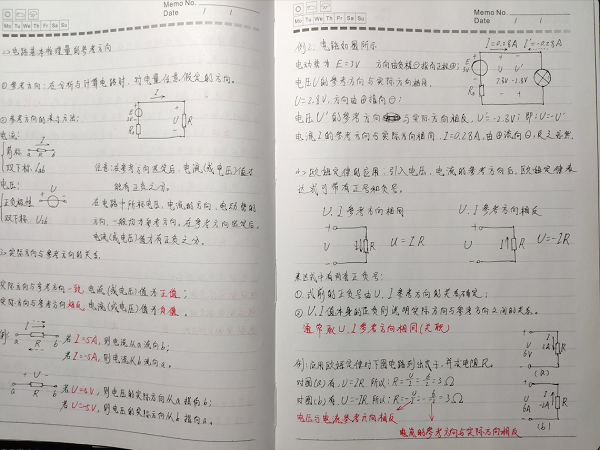 Memo No.
Date / /
Mo Tu We Th Fr Sa Su
电路基本物理量的参考方向
①参考方向：在分析与计算电路时，对电量任意假定的方向。
I
E
3V
R₀
U
R
②参考方向的表示方法：
电流：
箭标 a R b
双下标：Iab
注意：在参考方向选定后，电流(或电压)值才
能有正负之分。
电压：
正负极性 + U -
双下标：Uab
在电路中所标电压、电流的方向、电动势的
方向，一般均为参考方向，在参考方向选定后，
电流(或电压)值才有正负之分。
实际方向与参考方向的关系
实际方向与参考方向一致，电流(或电压)值为正值；
实际方向与参考方向相反，电流(或电压)值为负值。
例：
I
a R b
若I=5A，则电流从a流向b；
若I=-5A，则电流从b流向a。
+ U -
a R b
若U=5V，则电压的实际方向从a指向b；
若U=-5V，则电压的实际方向从b指向a。
Memo No.
Date / /
Mo Tu We Th Fr Sa Su
例2：电路如图所示
I=0.28A I'=-0.28A
电动势为E=3V 方向由负极⊖指向正极⊕；
E
3V
R₀
U U'
2.8V -2.8V
电压U的参考方向与实际方向相同，
U=2.8V，方向由⊕指向⊖；
电压U'的参考方向与实际方向相反，U'=-2.8V；即：U=-U'
电流I的参考方向与实际方向相同，I=0.28A，由⊕流向⊖，反之亦然。
欧姆定律的应用：引入电压、电流的参考方向后，欧姆定律表
达式可带有正号和负号。
U、I参考方向相同
U、I参考方向相反
U I R U=IR
U I R U=-IR
表达式中有两套正负号：
①式前的正负号由U、I参考方向的关系确定；
②U、I值本身的正负则说明实际方向与参考方向之间的关系。
通常取U、I参考方向相同(关联)
例：应用欧姆定律对下图电路列出式子，并求电阻R。
对图(a)有，U=IR 所以：R=U/I=6/2=3Ω
对图(b)有，U=-IR 所以：R=-U/I=-6/-2=3Ω
U
6V
I
2A
R
(a)
U
6V
I
-2A
R
(b)
电压与电流参考方向相反
电流的参考方向与实际方向相反